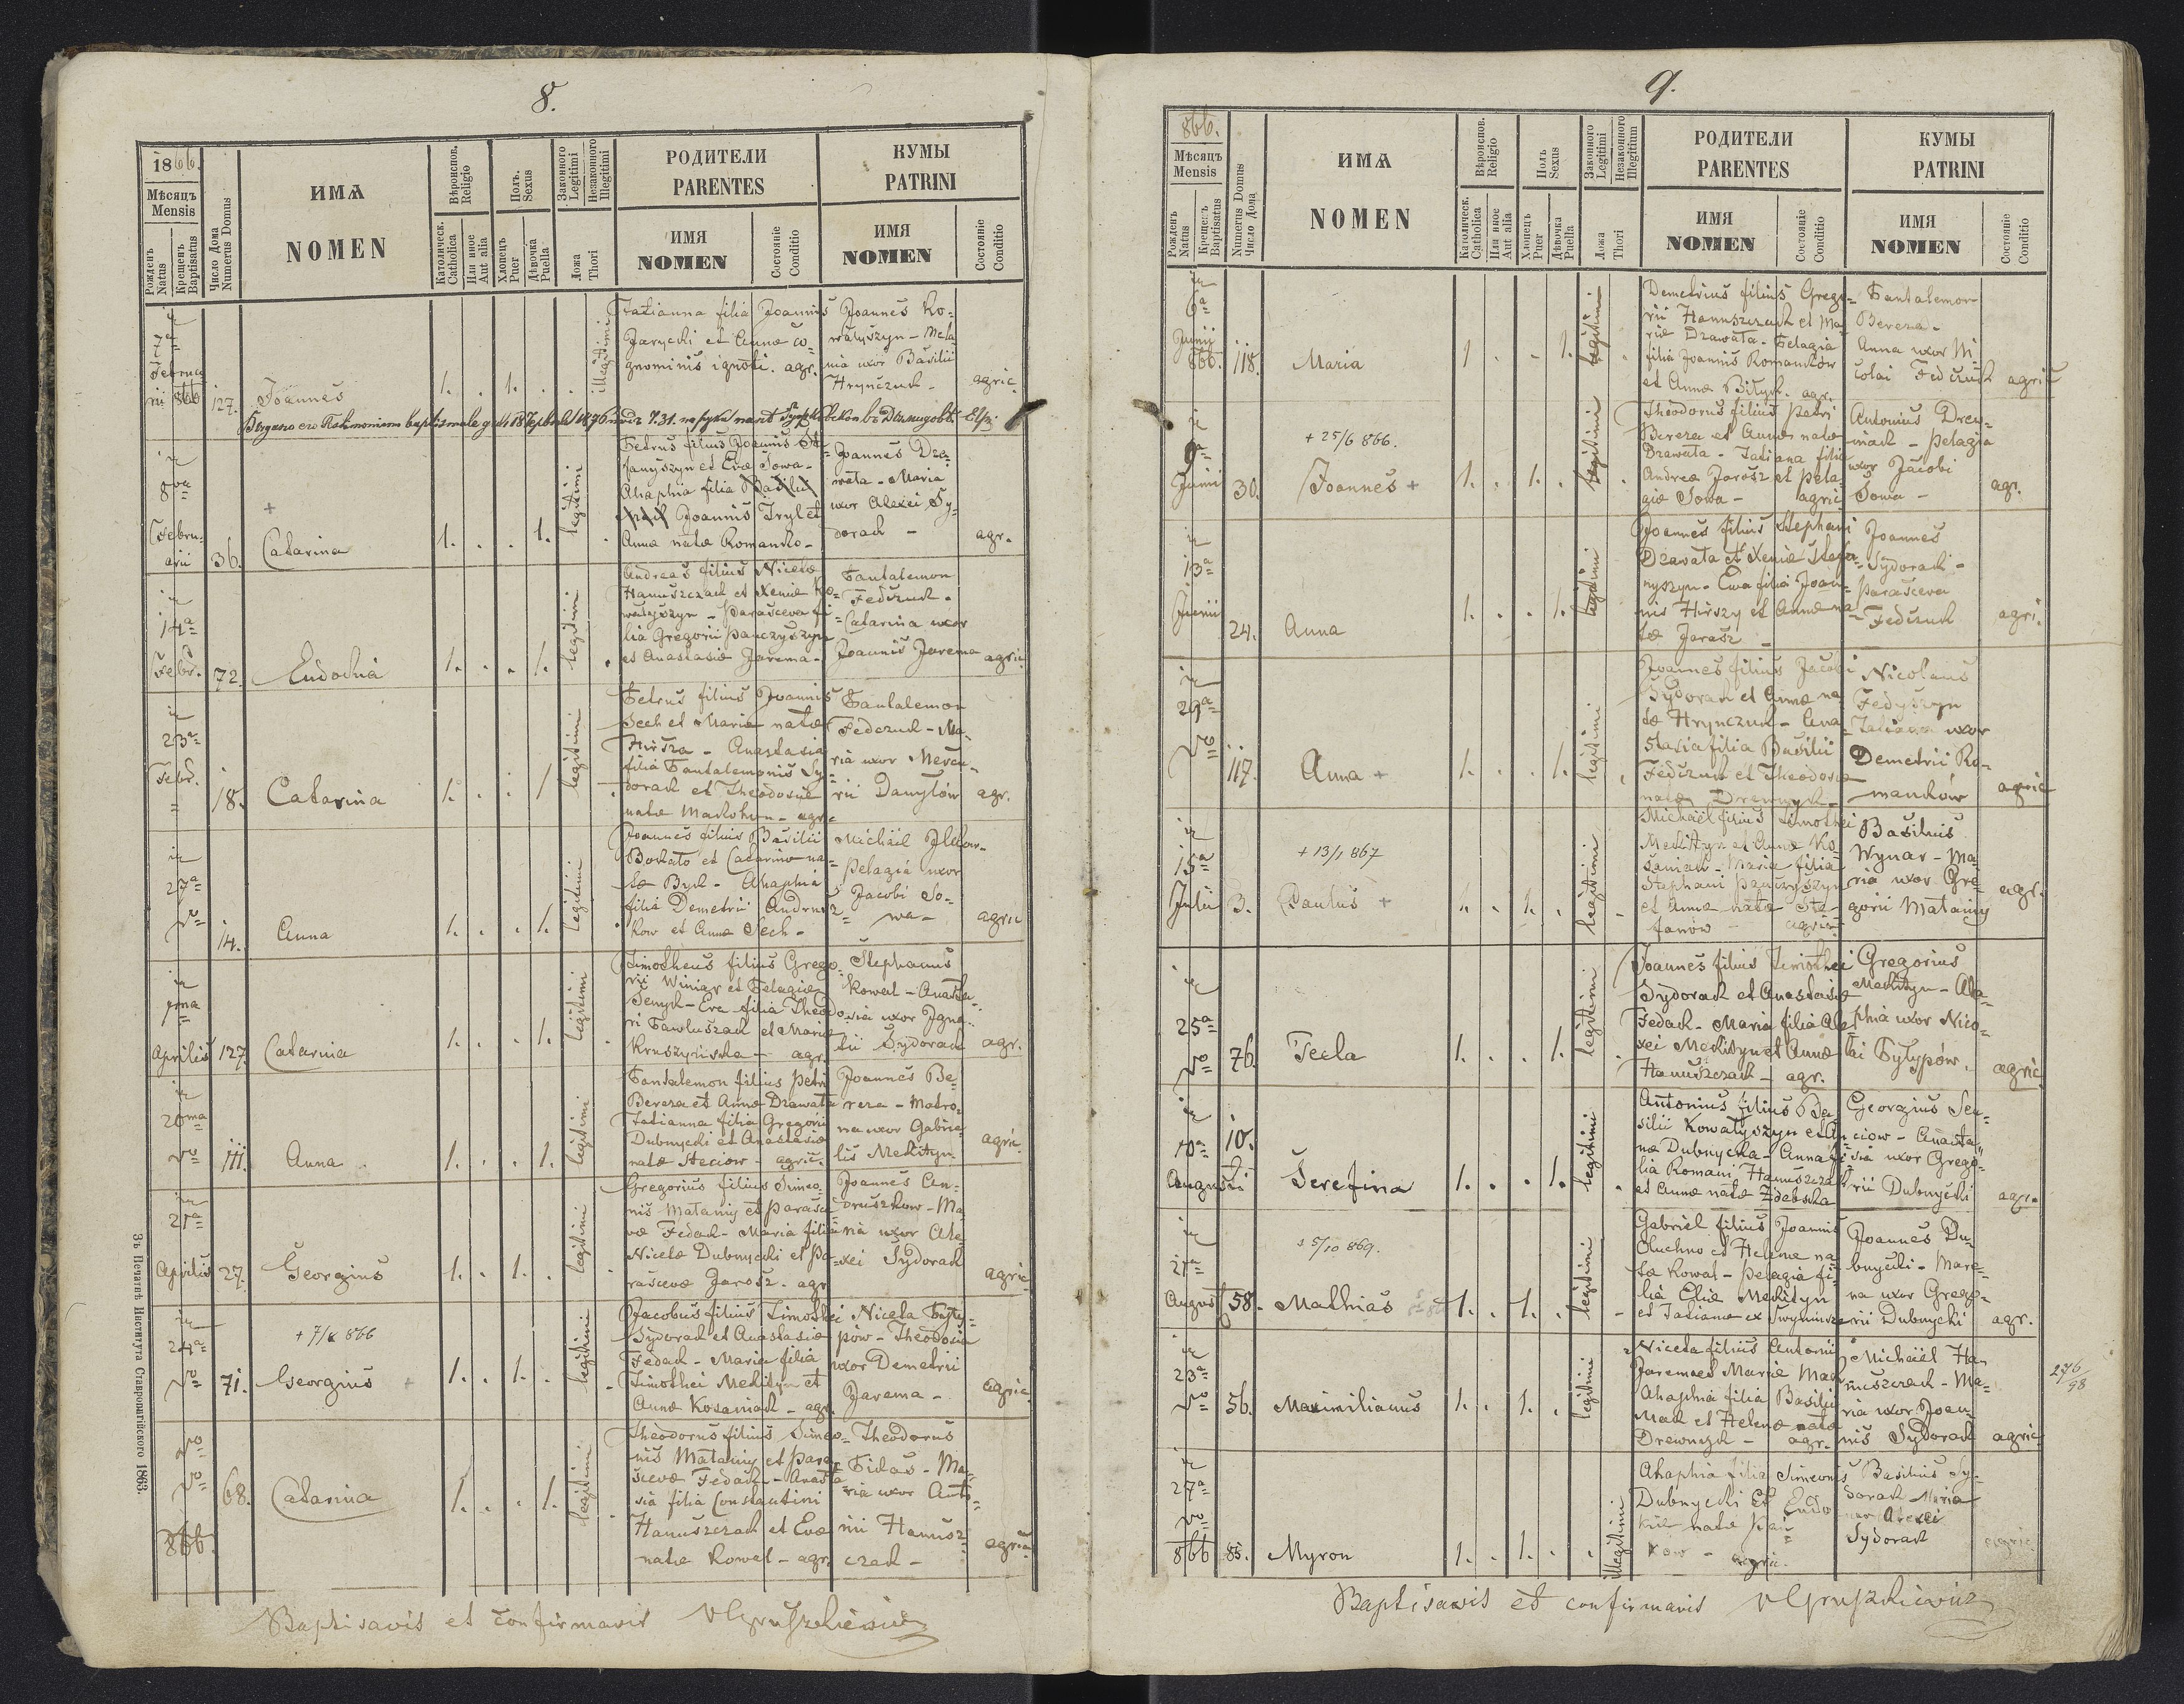 8.
1866.
Мѣсяцъ
Mensis
Рожденъ
Natus
Крещенъ
Baptisatus
Число Дома
Numerus Domus
ИМѦ
NOMEN
Вѣроиспов.
Religio
Католическ.
Catholica
Или иное
Aut alia
Полъ.
Sexus
Хлопецъ
Puer
Дѣвочка
Puella
Законного
Legitimi
Незаконного
Illegitimi
Ложа
Thori
РОДИТЕЛИ
PARENTES
ИМЯ
NOMEN
Состояніе
Conditio
КУМЫ
PATRINI
ИМЯ
NOMEN
Состояніе
Conditio
7a
Februa
rii 866
127.
Joannes
1. . 1. . .
illegitimi
Tatianna filia Joannis
Jarycki et Annæ co-
gnominis ignoti. agr.
Joannes Ko-
walyszyn - Mela
nia uxor Basilii
Hrynczuk -
agric.
8va
Febru-
arii
36.
+
Catarina
1. . . 1.
legitimi
Petrus filius Joannis
et Evæ Sowa -
Ahaphia filia Basilii
Joannis Tryl et
Annæ natæ Romanko -
Joannes Dra-
wata - Maria
uxor Alexei Sy-
dorak -
agr.
14a
Febr.
72.
Eudochia
1. . . 1.
legitimi
Andreas filius Nicetæ
Hanuszczak et Xeniæ Ko-
walyszyn - Parasceva fi-
lia Gregorii Panczyszyn
et Anastasiæ Jarema -
Pantalemon
Fedczuk.
Catarina uxor
Joannis Jarema
agric.
23a
Febr.
18.
Catarina
1. . . 1
legitimi
Petrus filius Joannis
Sech et Mariæ natæ
Hirsza - Anastasia
filia Pantalemonis Sy-
dorak et Theodosiæ
natæ - agr.
Pantalemon
Fedczuk - Ma-
ria uxor Mercu-
rii Danylów
agr.
27a
14.
Anna
1. . . 1.
legitimi
Joannes filius Basilii
et Catarinæ na-
tæ Byk - Ahaphia
filia Demetrii Andrusz-
kow et Annæ Sech -
Michael
Pelagia uxor
Jacobi So-
wa -
agric
1ma
Aprilis
127.
Catarina
1. . . 1.
legitimi
Timotheus filius Grego-
rii Winiar et Pelagiæ
Senyk - Eva filia Theodo-
ri Pawluszak et Mariæ
agr.
Stephanus
Kowal - Anasta-
sia uxor Igna-
tii Sydorak
agr.
20ma
111.
Anna
1. . . 1.
legitimi
Pantalemon filius Petri
Bereza et Annæ Drawata
Tatianna filia Gregorii
Dubnycki et Anastasiæ
natæ Steciow - agric.
Joannes Be-
reza - Matro-
na uxor Gabrie-
lis Mekityn
agric
21a
Aprilis
27.
Georgius
1. . 1. .
legitimi
Gregorius filius Simeo-
nis Matainy et Parasce-
væ Fedak - Maria filia
Nicetæ Dubnycki et Pa-
rascevæ Jarosz. agr
Joannes An-
druszkow - Ma
ria uxor Ale-
xei Sydorak
agric
24a
71.
Georgius +
1. . 1. .
legitimi
Jacobus filius Timothei
Sydorak et Anastasiæ
Fedak - Maria filia
Timothei Mekityn et
Annæ Kosaniak - agr.
Niceta Pyly-
pów - Theodosia
uxor Demetrii
Jarema -
agric
68.
Catarina
1. . . 1.
legitimi
Theodorus filius Simeo-
nis Matainy et Para-
scevæ Fedak - Anasta
sia filia Constantini
Hanuszczak et Evæ
natæ Kowal - agr.
Theodorus
Fidas - Ma-
ria uxor Anto-
nii Hanusz-
czak -
agric
866.
Baptisavit et confirmavit
Зъ Печатнѣ Института Ставропигійского 1863.
9.
866.
Мѣсяцъ
Mensis
Рожденъ
Natus
Крещенъ
Baptisatus
Numerus Domus
Число Дома
ИМѦ
NOMEN
Вѣроиспов.
Religio
Католическ.
Catholica
Или иное
Aut alia
Полъ
Sexus
Хлопецъ
Puer
Дѣвочка
Puella
Законного
Legitimi
Незаконного
Illegitimum
Ложа
Thori
РОДИТЕЛИ
PARENTES
ИМЯ
NOMEN
Состояніе
Conditio
КУМЫ
PATRINI
ИМЯ
NOMEN
Состояніе
Conditio
6a
Junij
866.
118.
Maria
1 . . 1.
legitimi
Demetrius filius Grego-
rii Hanuszczak et Ma-
riæ Drawata - Pelagia
filia Joannis Romanków
et Annæ Bilyk. agr.
Pantalemon
Bereza -
Anna uxor Ni-
colai Fedczuk
agric
9a
Junii
30.
+ 25/6 866.
Joannes +
1. . 1. .
legitimi
Theodorus filius Petri
Bereza et Annæ natæ
Drawata - Tatiana filia
Andreæ Jarosz et Pela-
giæ Sowa - agric
Antonius Drew-
niak - Pelagia
uxor Jacobi
Sowa -
agr.
13a
Junii
24.
Anna
1. . . 1.
legitimi
Joannes filius Stephani
Drawata et Xeniæ
Eva filia Joan-
nis Hirszy et Annæ na-
tæ Jarosz -
Joannes
Sydorak -
Parasceva
Fedczuk
agri.
29a
117.
Anna +
1. . . 1.
legitimi
Joannes filius Jacobi
Sydorak et Annæ na
tæ Hrynczuk - Ana
stasia filia Basilii
Fedczuk et Theodosiæ
natæ Drewnyk -
Nicolaus
Fedyszyn
Tatiana uxor
Demetrii Ro-
manków
agric
15a
Julii
3.
+ 13/1 867
Paulus +
1. . 1. .
legitimi
Michael filius Timothei
Mekityn et Annæ Ko-
saniak - Maria filia
Stephani Panczyszyn
et Annæ natæ Ste-
fanow - agric
Basilius
Wynar - Ma
ria uxor Gre-
gorii Matainy
agr.
25a
76.
Tecla
1. . . 1.
legitimi
Joannes filius Timothei
Sydorak et Anastasiæ
Fedak - Maria filia Ale-
xei Mekityn et Annæ
Hanuszczak - agr.
Gregorius
Mekityn - Aha-
phia uxor Nico-
lai Pylypów.
agric
10a
Augusti
10.
Serefina
1. . . 1.
legitimi
Antonius filius Ba-
silii Kowalyszyn et An-
næ Dubnycka - Anna fi-
lia Romani Hanuszczak
et Annæ natæ
Georgius Sen-
ciow - Anasta-
sia uxor Grego-
rii Dubnycki
agr.
21a
August
58.
5/10 869.
Mathias
1. . 1. .
legitimi
Gabriel filius Joannis
Oluchno et Helenæ na-
tæ Kowal - Pelagia fi-
lia Eliæ Mekityn
et Tatianæ ex
Joannes Du-
bnycki - Mari-
na uxor Grego-
rii Dubnycki
agr.
23a
56.
Maximilianus
1. . 1. .
legitimi
Niceta filius Antonii
Jarema et Mariæ Mak
Ahaphia filia Basilii
Mak et Helenæ natæ
Drewnyk - agr.
Michael Ha-
nuszczak - Ma-
ria uxor Joan-
nis Sydorak
agric
276/98
27a
866
85.
Myron
1. . 1. . .
illegitimi
Ahaphia filia Simeonis
Dubnycki et Eudo
kiæ natæ
agric.
Basilius Sy-
dorak Maria
uxor Alexei
Sydorak
agric.
Baptisavit et confirmavit